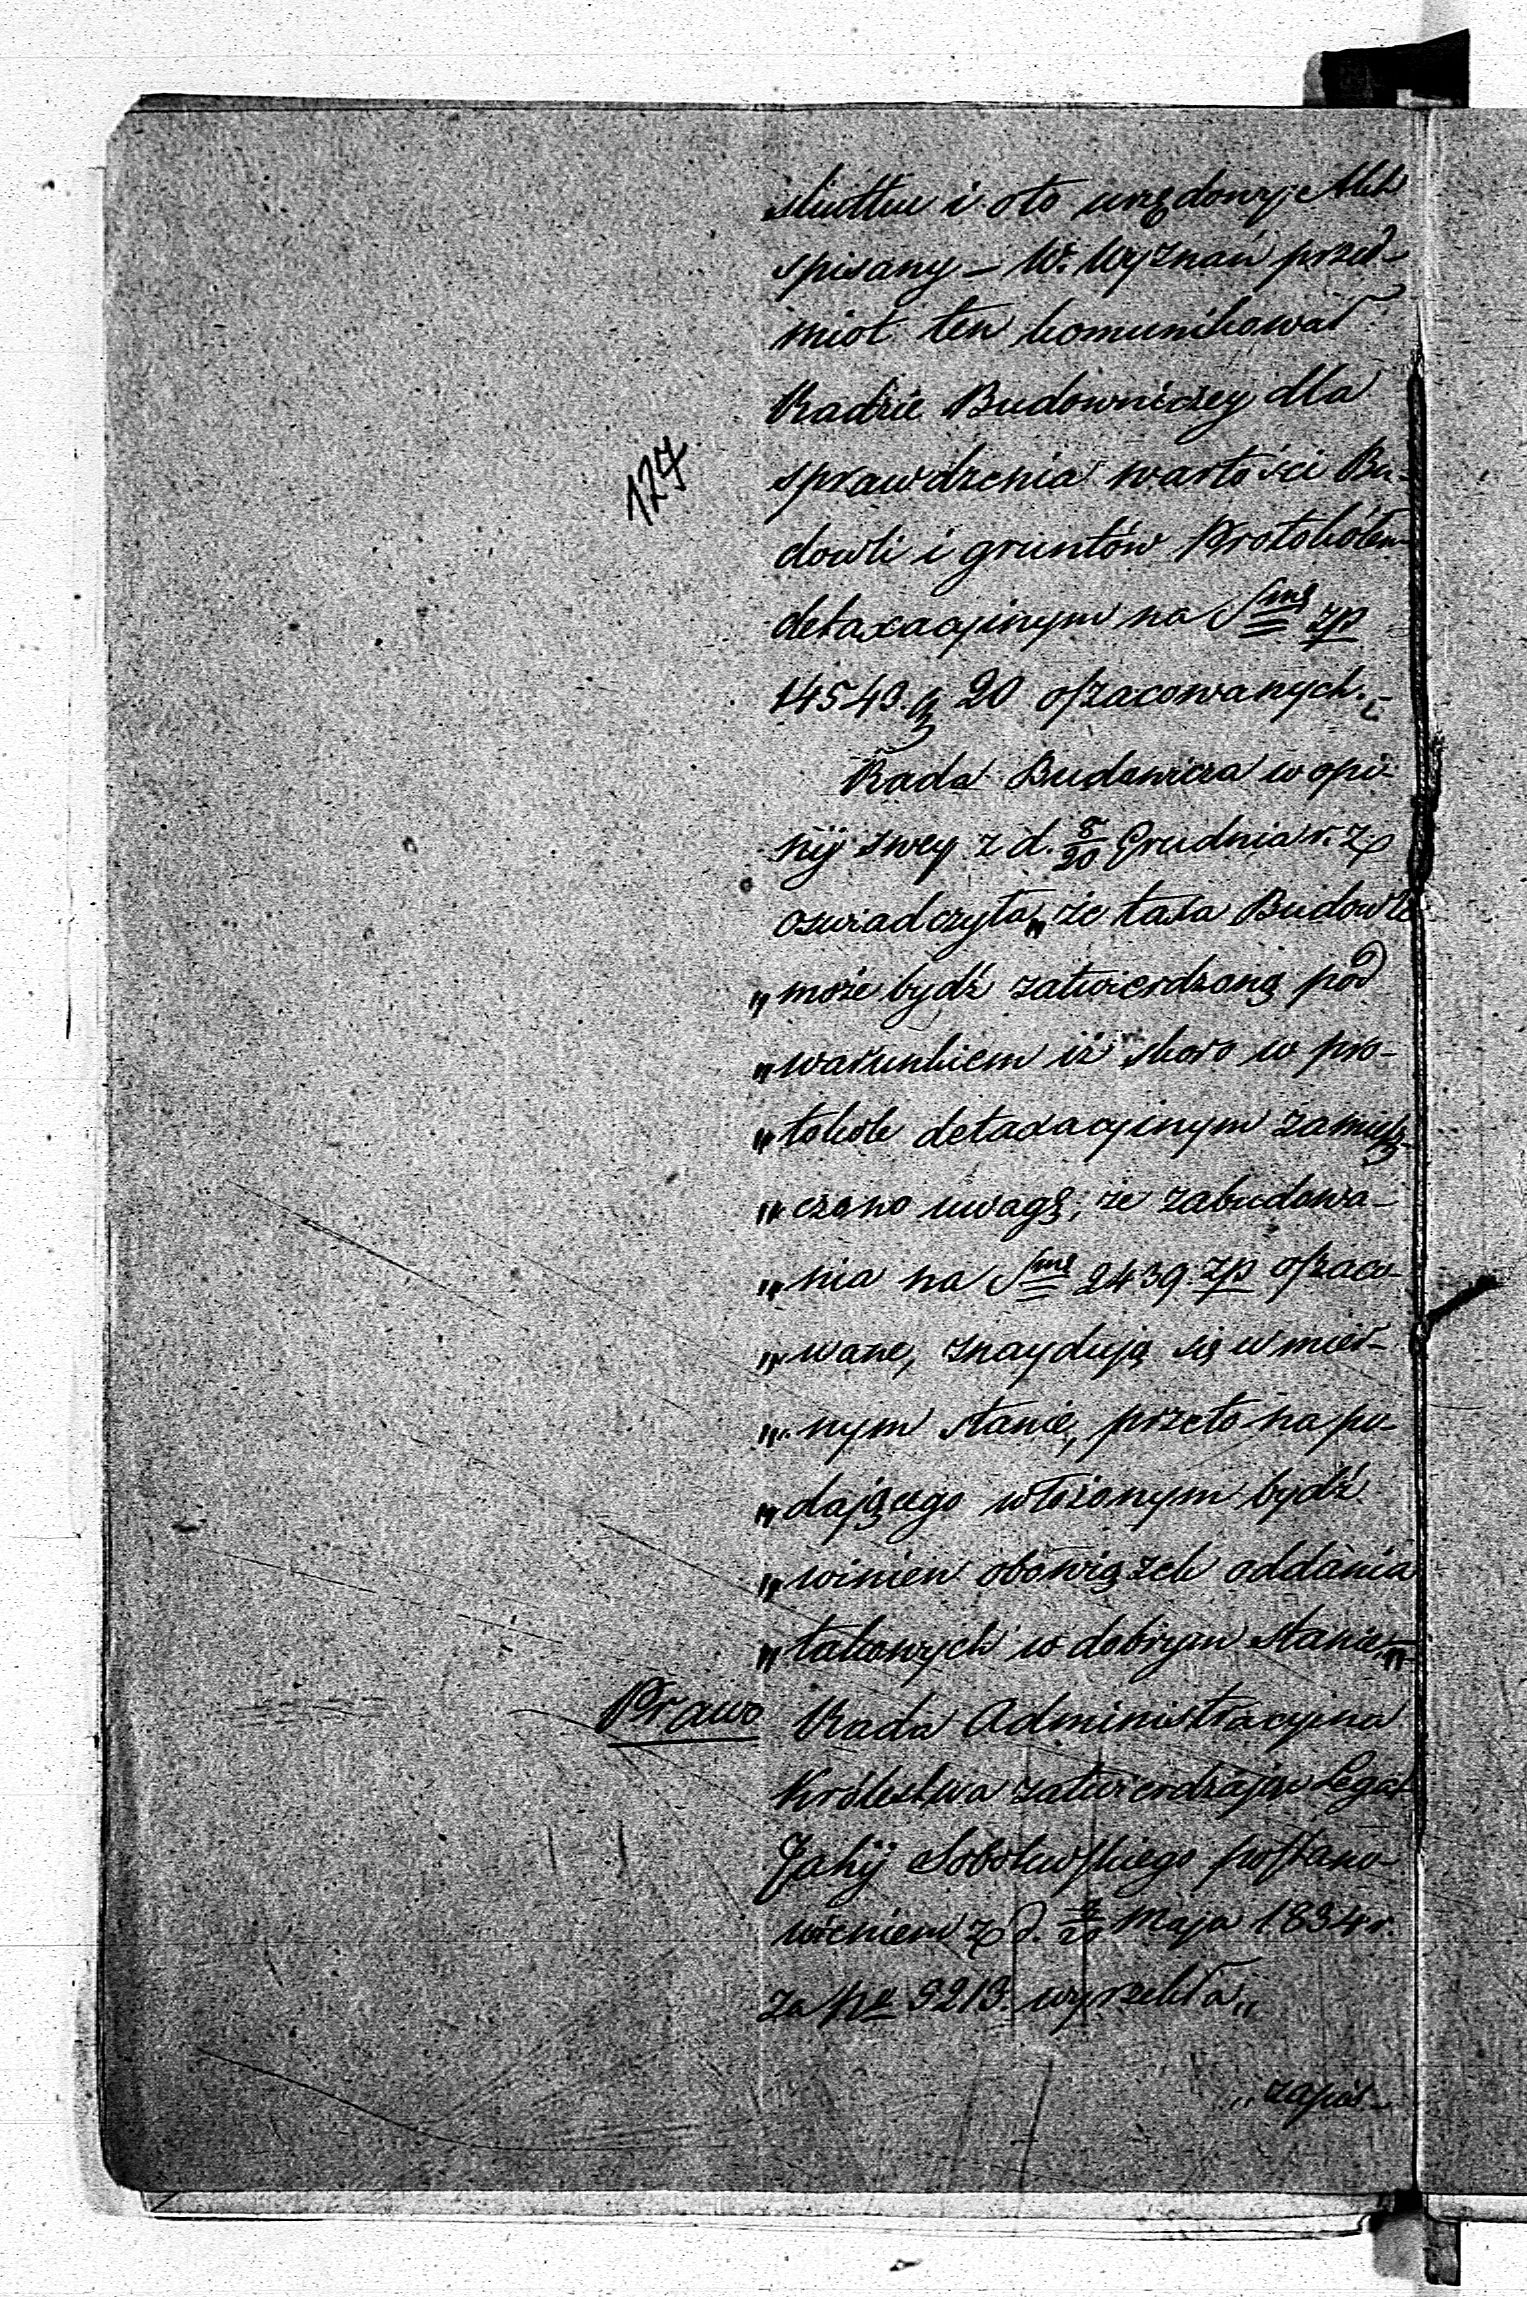 skutku i oto urzędowy Akt
spisany – W. Wyznań przed-
miot ten komunikował
Radzie Budowniczey dla
sprawdzenia wartości Bu-
dowli i gruntów Protokółem
detaxacyinym na Smę zp
14543. g 20 oszacowanych.
Rada Budownicza w opi-
nij swey z d. 8/20 Grudnia r. z
oswiadczyła „że taxa Budowli
„może bydź zatwierdzoną pod
„warunkiem iż skoro w pro-
„tokole detaxacyinym zamiesz-
„czono uwagę, że zabudowa-
„nia na Smę 2439 zp oszaco-
„wane, znaydują się w mier-
„nym stanie, przeto na po-
„dającego włożonym bydź
„winien obowiązek oddania
„takowych w dobrym stanie„
Prawo
Rada Administracyina
Królestwa zatwierdzaiąc Legat
Sobolewskiego postano-
wieniem z d. Maja 1834 r.
za No 9213. wyrzekła„
127